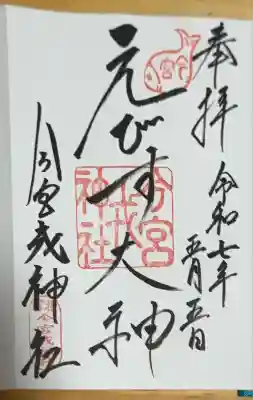 奉拝
令和七年
五月五日
今宮
えびす大神
今宮
戎
神社
今宮戎神社